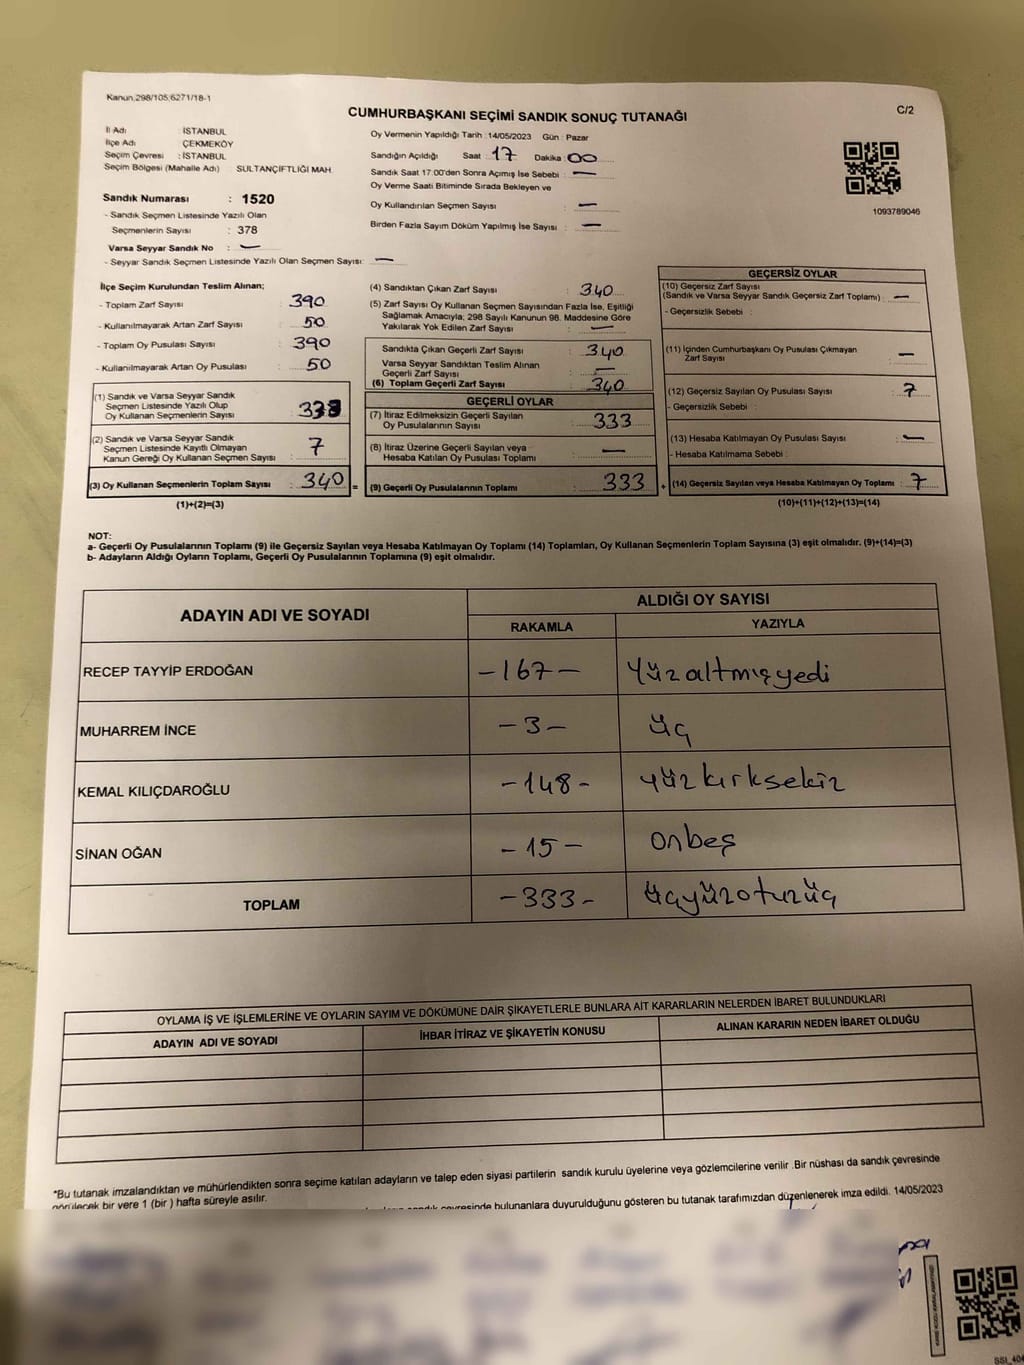 Kanun:298/105;6271/18-1
C/2
CUMHURBAŞKANI SEÇİMİ SANDIK SONUÇ TUTANAĞI
İl Adı : İSTANBUL
İlçe Adı : ÇEKMEKÖY
Seçim Çevresi : İSTANBUL
Seçim Bölgesi (Mahalle Adı) SULTANÇİFTLİĞİ MAH.
Sandık Numarası : 1520
- Sandık Seçmen Listesinde Yazılı Olan
Seçmenlerin Sayısı : 378
Varsa Seyyar Sandık No : —
- Seyyar Sandık Seçmen Listesinde Yazılı Olan Seçmen Sayısı: —
Oy Vermenin Yapıldığı Tarih :14/05/2023 Gün : Pazar
Sandığın Açıldığı Saat : 17 Dakika : 00
Sandık Saat 17:00'den Sonra Açımış İse Sebebi : —
Oy Verme Saati Bitiminde Sırada Bekleyen ve
Oy Kullandırılan Seçmen Sayısı : —
Birden Fazla Sayım Döküm Yapılmış İse Sayısı : —
1093789046
İlçe Seçim Kurulundan Teslim Alınan;
- Toplam Zarf Sayısı : 390
- Kullanılmayarak Artan Zarf Sayısı : 50
- Toplam Oy Pusulası Sayısı : 390
- Kullanılmayarak Artan Oy Pusulası : 50
(1) Sandık ve Varsa Seyyar Sandık
Seçmen Listesinde Yazılı Olup
Oy Kullanan Seçmenlerin Sayısı : 333
(2) Sandık ve Varsa Seyyar Sandık
Seçmen Listesinde Kayıtlı Olmayan
Kanun Gereği Oy Kullanan Seçmen Sayısı : 7
(3) Oy Kullanan Seçmenlerin Toplam Sayısı : 340 =
(1)+(2)=(3)
(4) Sandıktan Çıkan Zarf Sayısı : 340
(5) Zarf Sayısı Oy Kullanan Seçmen Sayısından Fazla İse, Eşitliği
Sağlamak Amacıyla; 298 Sayılı Kanunun 98. Maddesine Göre
Yakılarak Yok Edilen Zarf Sayısı : —
Sandıkta Çıkan Geçerli Zarf Sayısı : 340
Varsa Seyyar Sandıktan Teslim Alınan
Geçerli Zarf Sayısı : —
(6) Toplam Geçerli Zarf Sayısı : 340
GEÇERLİ OYLAR
(7) İtiraz Edilmeksizin Geçerli Sayılan
Oy Pusulalarının Sayısı : 333
(8) İtiraz Üzerine Geçerli Sayılan veya
Hesaba Katılan Oy Pusulası Toplamı : —
(9) Geçerli Oy Pusulalarının Toplamı : 333 +
GEÇERSİZ OYLAR
(10) Geçersiz Zarf Sayısı
(Sandık ve Varsa Seyyar Sandık Geçersiz Zarf Toplamı) : —
- Geçersizlik Sebebi :
(11) İçinden Cumhurbaşkanı Oy Pusulası Çıkmayan
Zarf Sayısı : —
(12) Geçersiz Sayılan Oy Pusulası Sayısı : 7
- Geçersizlik Sebebi :
(13) Hesaba Katılmayan Oy Pusulası Sayısı : —
- Hesaba Katılmama Sebebi :
(14) Geçersiz Sayılan veya Hesaba Katılmayan Oy Toplamı : 7
(10)+(11)+(12)+(13)=(14)
NOT:
a- Geçerli Oy Pusulalarının Toplamı (9) ile Geçersiz Sayılan veya Hesaba Katılmayan Oy Toplamı (14) Toplamları, Oy Kullanan Seçmenlerin Toplam Sayısına (3) eşit olmalıdır. (9)+(14)=(3)
b- Adayların Aldığı Oyların Toplamı, Geçerli Oy Pusulalarının Toplamına (9) eşit olmalıdır.
ADAYIN ADI VE SOYADI ALDIĞI OY SAYISI
RAKAMLA YAZIYLA
RECEP TAYYİP ERDOĞAN -167- Yüzaltmışyedi
MUHARREM İNCE -3- üç
KEMAL KILIÇDAROĞLU -148- yüzkırksekiz
SİNAN OĞAN -15- Onbeş
TOPLAM -333- üçyüzotuzüç
OYLAMA İŞ VE İŞLEMLERİNE VE OYLARIN SAYIM VE DÖKÜMÜNE DAİR ŞİKAYETLERLE BUNLARA AİT KARARLARIN NELERDEN İBARET BULUNDUKLARI
ADAYIN ADI VE SOYADI İHBAR İTİRAZ VE ŞİKAYETİN KONUSU ALINAN KARARIN NEDEN İBARET OLDUĞU
*Bu tutanak imzalandıktan ve mühürlendikten sonra seçime katılan adayların ve talep eden siyasi partilerin sandık kurulu üyelerine veya gözlemcilerine verilir .Bir nüshası da sandık çevresinde
görülecek bir yere 1 (bir ) hafta süreyle asılır.
sandık çevresinde bulunanlara duyurulduğunu gösteren bu tutanak tarafımızdan düzenlenerek imza edildi. 14/05/2023